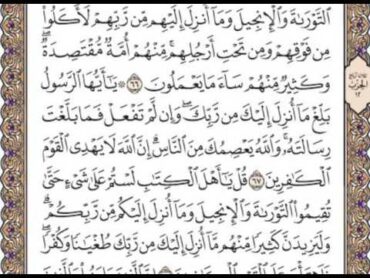 ٱلتَّوْرَىٰةَ وَٱلْإِنجِيلَ وَمَآ أُنزِلَ إِلَيْهِم مِّن رَّبِّهِمْ لَأَكَلُوا۟
مِن فَوْقِهِمْ وَمِن تَحْتِ أَرْجُلِهِم ۚ مِّنْهُمْ أُمَّةٌ مُّقْتَصِدَةٌ ۖ
وَكَثِيرٌ مِّنْهُمْ سَآءَ مَا يَعْمَلُونَ ٦٦ ۞ يَٰٓأَيُّهَا ٱلرَّسُولُ
بَلِّغْ مَآ أُنزِلَ إِلَيْكَ مِن رَّبِّكَ ۖ وَإِن لَّمْ تَفْعَلْ فَمَا بَلَّغْتَ
رِسَالَتَهُۥ ۚ وَٱللَّهُ يَعْصِمُكَ مِنَ ٱلنَّاسِ ۗ إِنَّ ٱللَّهَ لَا يَهْدِى ٱلْقَوْمَ
ٱلْكَٰفِرِينَ ٦٧ قُلْ يَٰٓأَهْلَ ٱلْكِتَٰبِ لَسْتُمْ عَلَىٰ شَىْءٍ حَتَّىٰ
تُقِيمُوا۟ ٱلتَّوْرَىٰةَ وَٱلْإِنجِيلَ وَمَآ أُنزِلَ إِلَيْكُم مِّن رَّبِّكُمْ ۗ
وَلَيَزِيدَنَّ كَثِيرًا مِّنْهُم مَّآ أُنزِلَ إِلَيْكَ مِن رَّبِّكَ طُغْيَٰنًا وَكُفْرًا ۖ